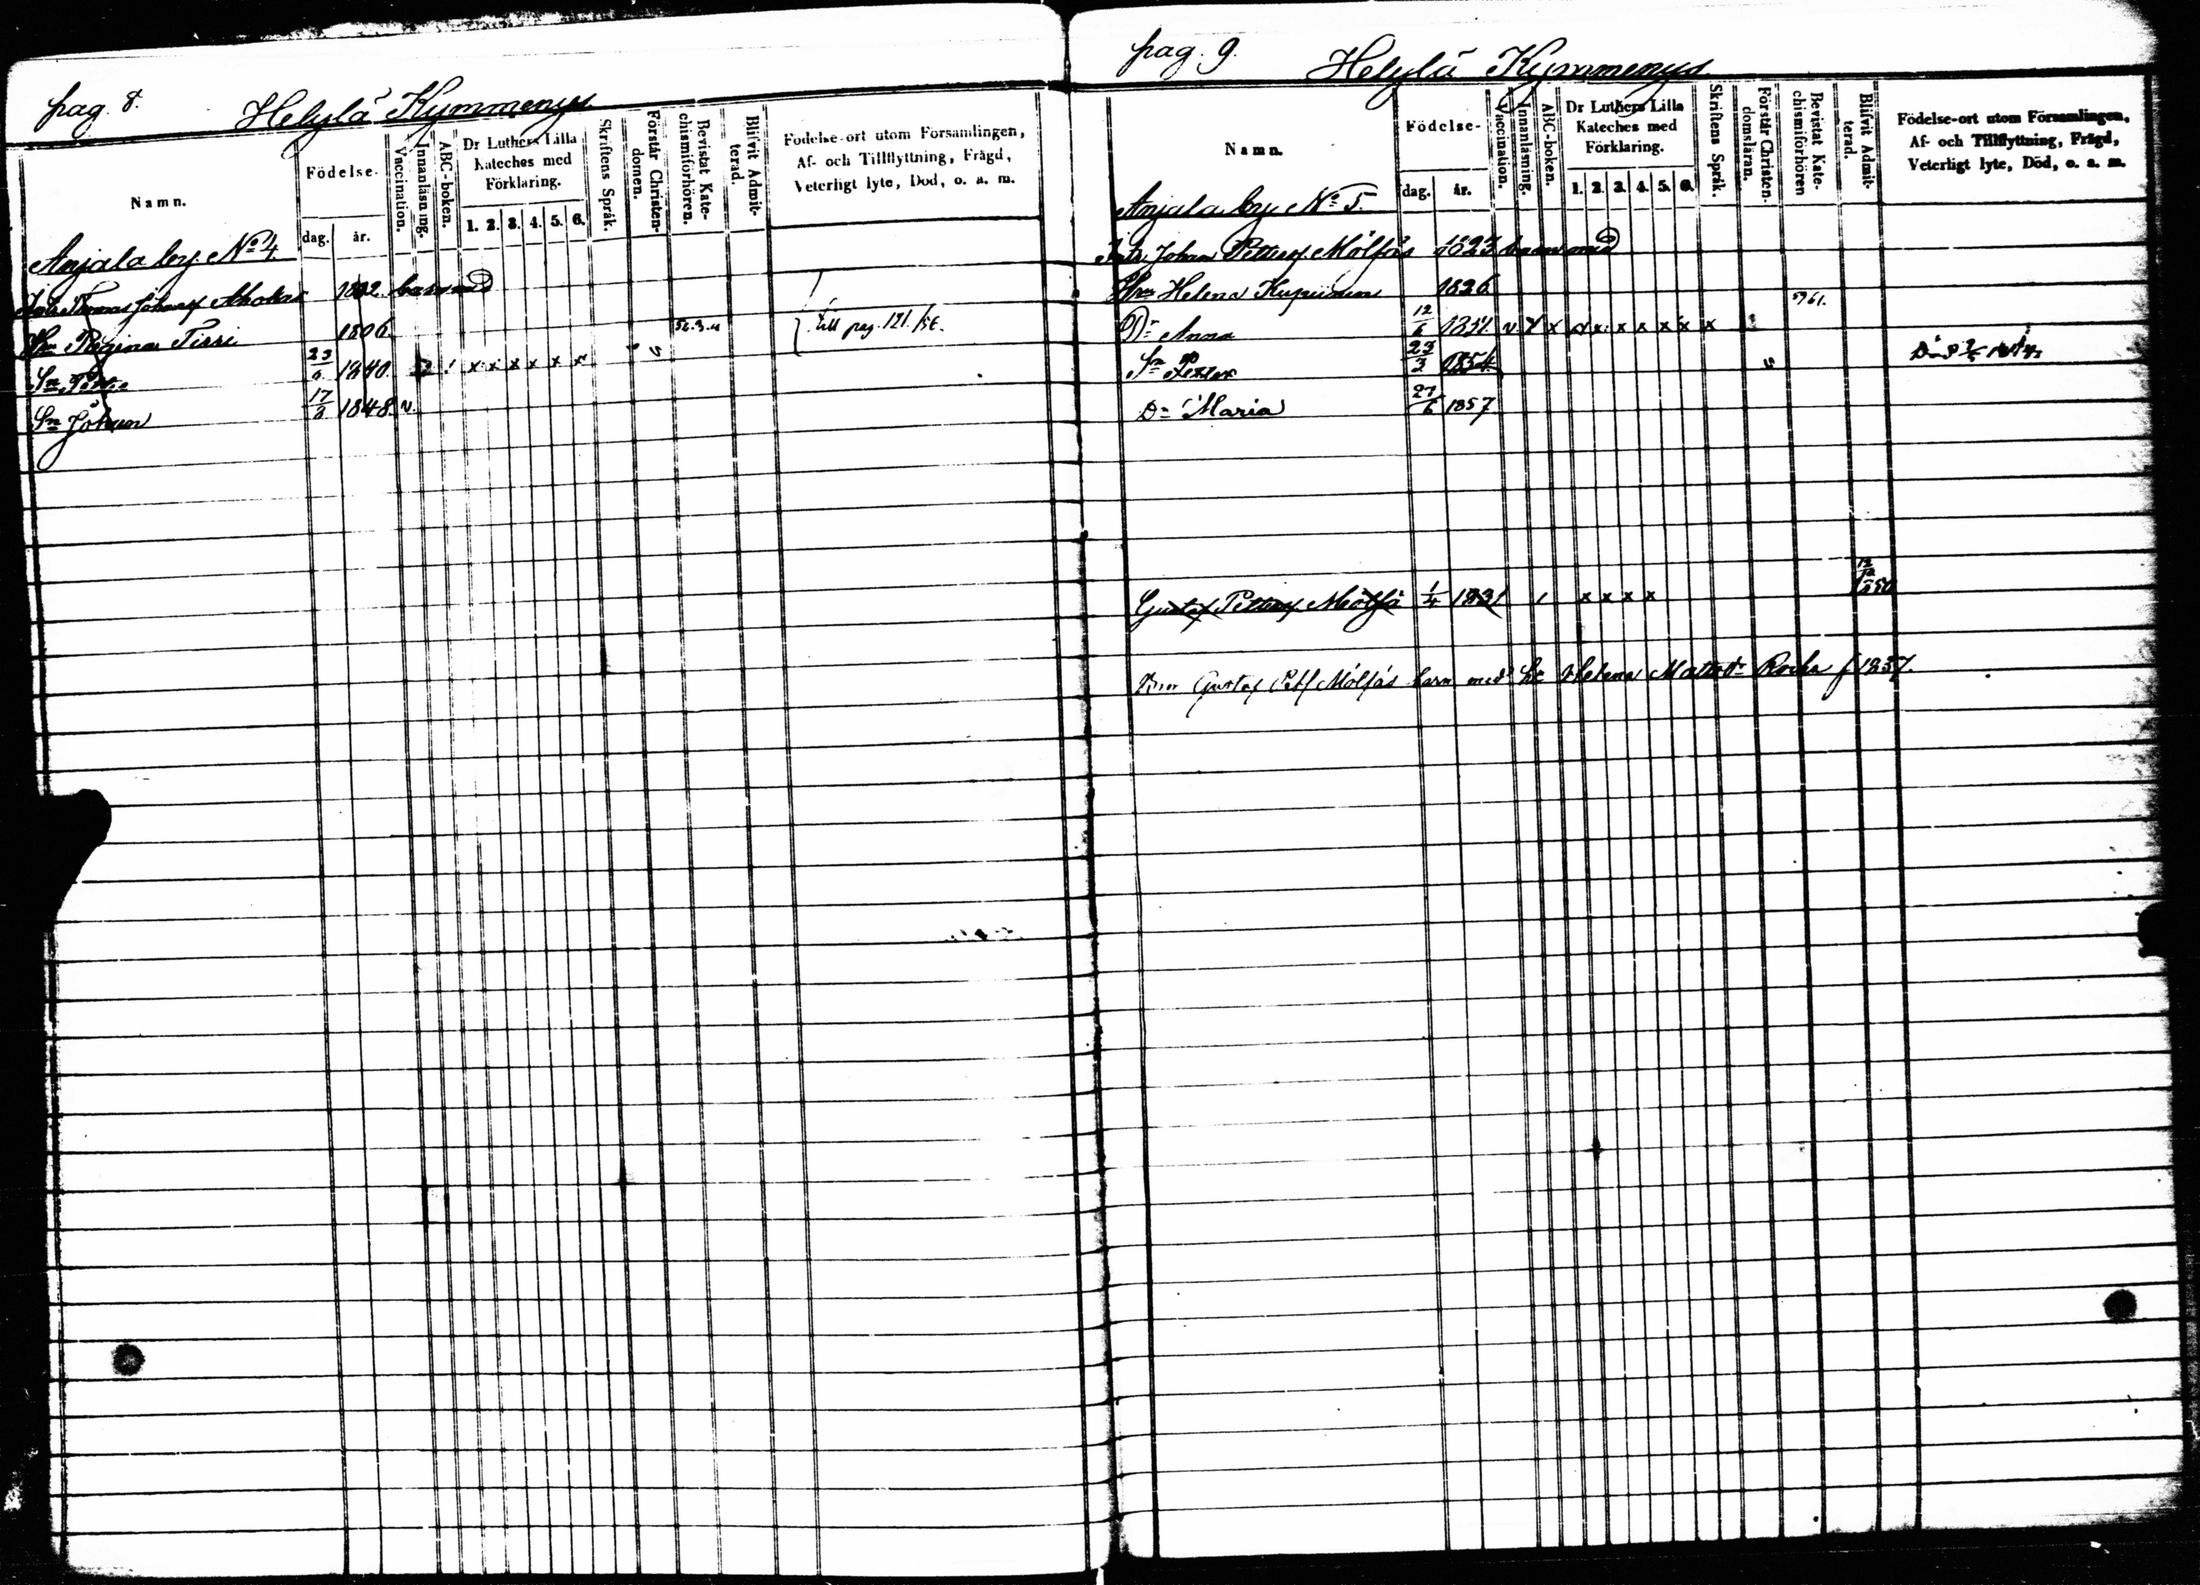 pag. 8.
Helylä Kymmenys
Namn.
Födelse-
dag. år.
Vaccination.
Innanläsning.
ABC-boken.
Dr Luthers Lilla
Kateches med
Förklaring.
1. 2. 3. 4. 5. 6.
Skriftens Språk.
Förstår Christen-
domen.
Bevistat Kate-
chismiförhören.
Blifvit Admit-
terad.
Födelse-ort utom Församlingen,
Af- och Tillflyttning, Frägd,
Veterligt lyte, Död, o. a. m.
Anjala by. No 4
Thomas
Hu Regina Tirri 1806 till pag. 121./56.
Sn 23/6 1840 x x x x x x
Sn Johan 17/8 1848 v.
pag. 9.
Helylä Kymmenys
Namn.
Födelse-
dag. år.
Vaccination.
Innanläsning.
ABC-boken.
Dr Luthers Lilla
Kateches med
Förklaring.
1. 2. 3. 4. 5. 6.
Skriftens Språk.
Förstår Christen-
domsläran.
Bevistat Kate-
chismiförhören
Blifvit Admit-
terad.
Födelse-ort utom Församlingen,
Af- och Tillflyttning, Frägd,
Veterligt lyte, Död, o. a. m.
Anjala by No 5.
Johan Petterss Mölsäs 1823
Hu Helena 1826
Dr Anna 12/6 v x x x x x x x
Sn Petter 23/2 1854
Dr Maria 27/6 1857
Gustaf Petterss 1/4 1831 x x x x 1850
Gustaf Mölsäs barn med Helena Matts dr f 1837.